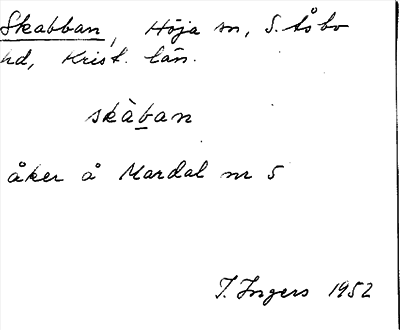 Skabban, Höja sn, S. Åsbo
hd, Krist. län.
skàb̲an
åker å Mardal nr 5
I. Ingers 1952